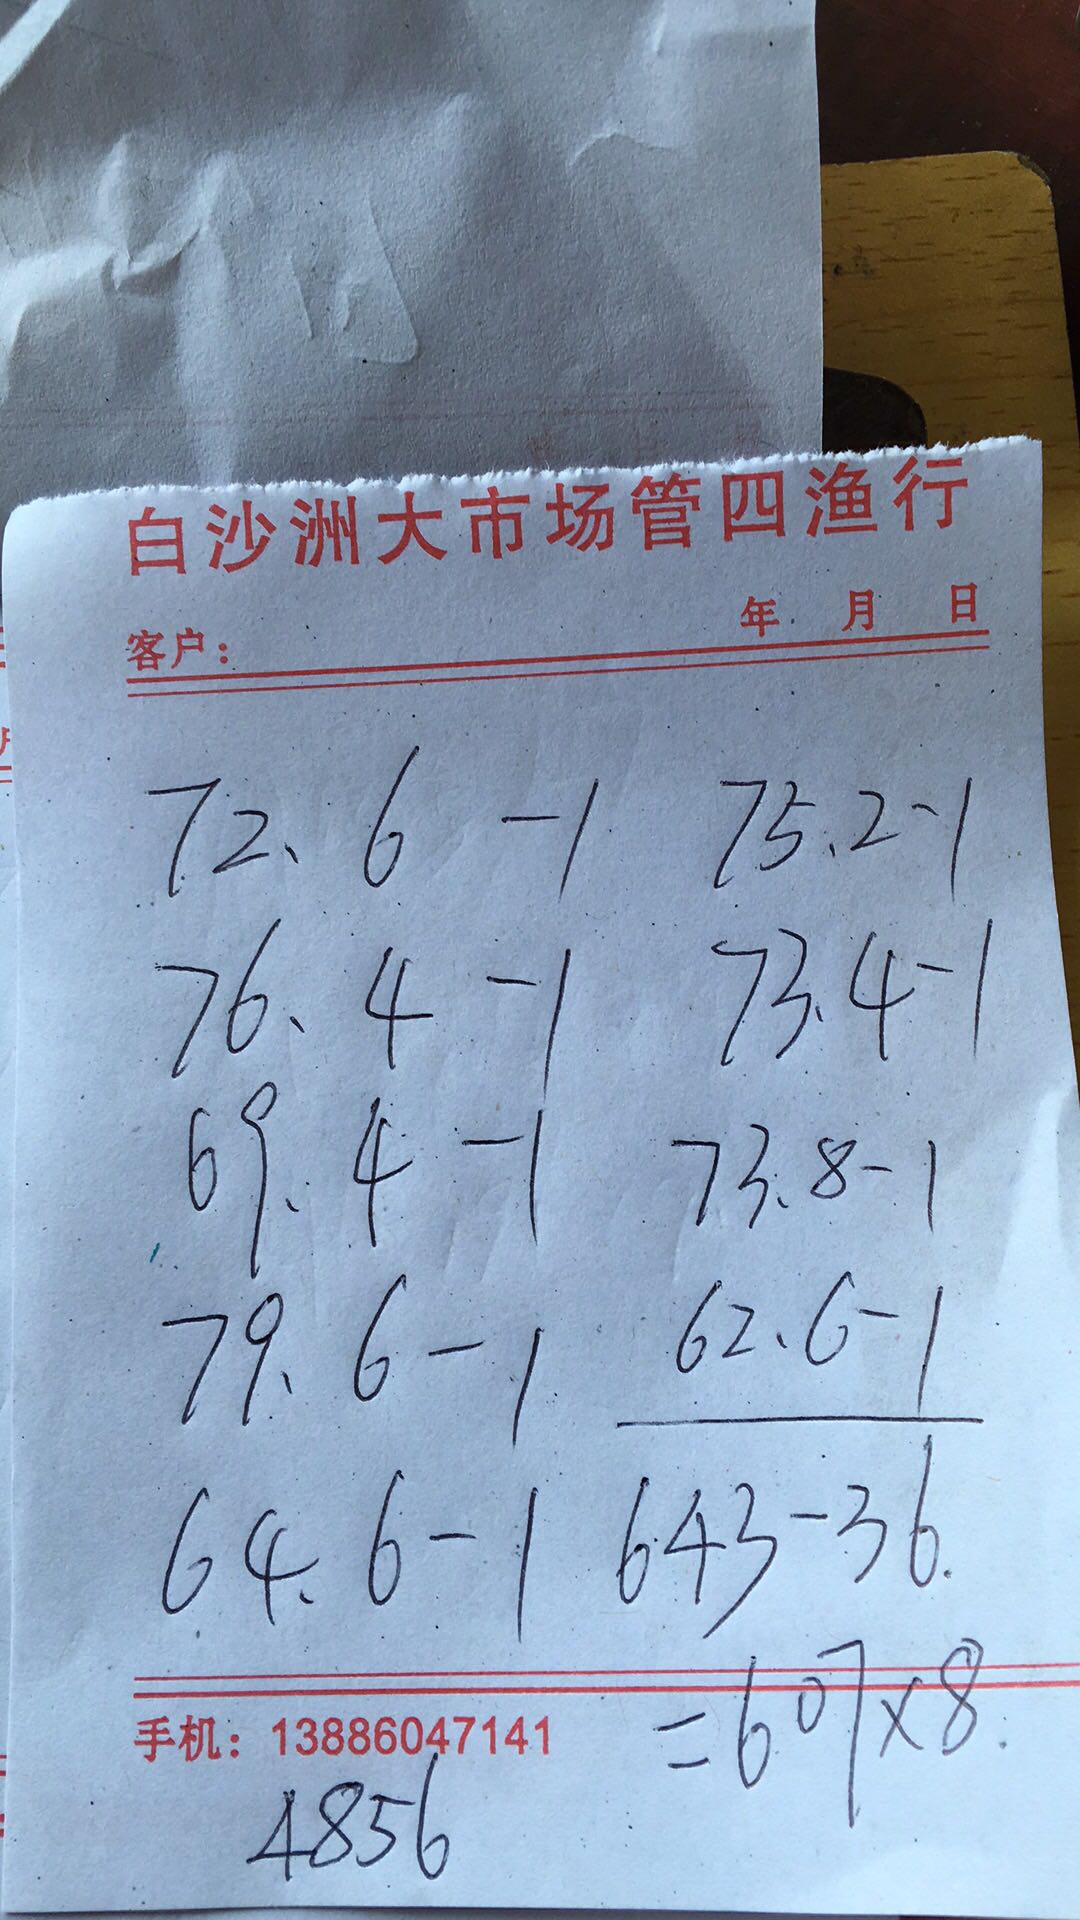 白沙洲大市场管四渔行
年 月 日
客户：
72.6-1 75.2-1
76.4-1 73.4-1
69.4-1 73.8-1
79.6-1 62.6-1
64.6-1 643-36.
=607×8.
手机：13886047141
4856